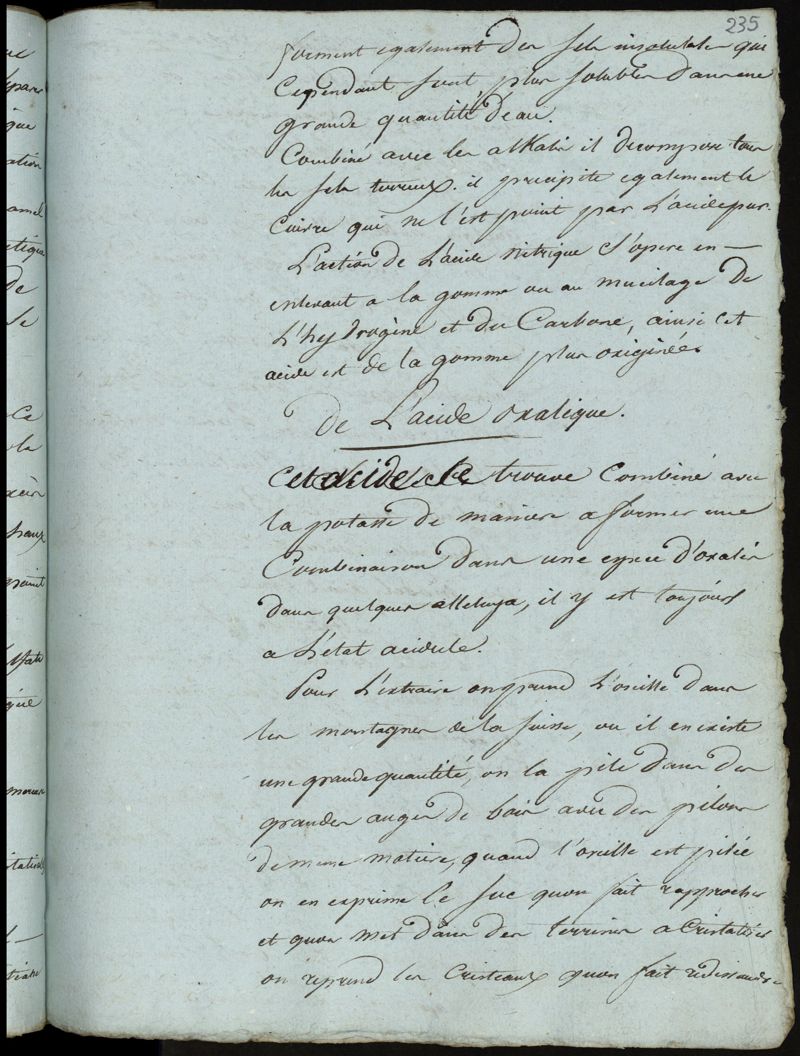 235
forment egalement des sels insolubles qui
Cependant sont plus solubles dans une
grande quantité d'eau.
Combiné avec les alkalis il decompose tous
les sels terreux. il precipite egalement le
cuivre qui ne l'est point par L'acide pur.
L'action de L'acide nitrique s'opere en —
enlevant a la gomme ou au mucilage de
L'hydrogène et du Carbone, ainsi cet
acide est de la gomme plus oxigénée
De L'acide oxalique.
Cet acide se trouve Combiné avec
la potasse de maniere a former une
Combinaison dans une espece d'oxalis
dans quelques alleluya, il y est toujours
a L'état acidule.
Pour L'extraire on prend L'oseille dans
les montagnes de la Suisse, ou il en existe
une grande quantité, on la pile dans des
grandes auges de bois avec des pilons
de meme matiere, quand l'oseille est pilée
on en exprime le suc qu'on fait rapprocher
et qu'on met dans des terrines a Cristaliser
on reprend les Cristeaux qu'on fait redissoudre